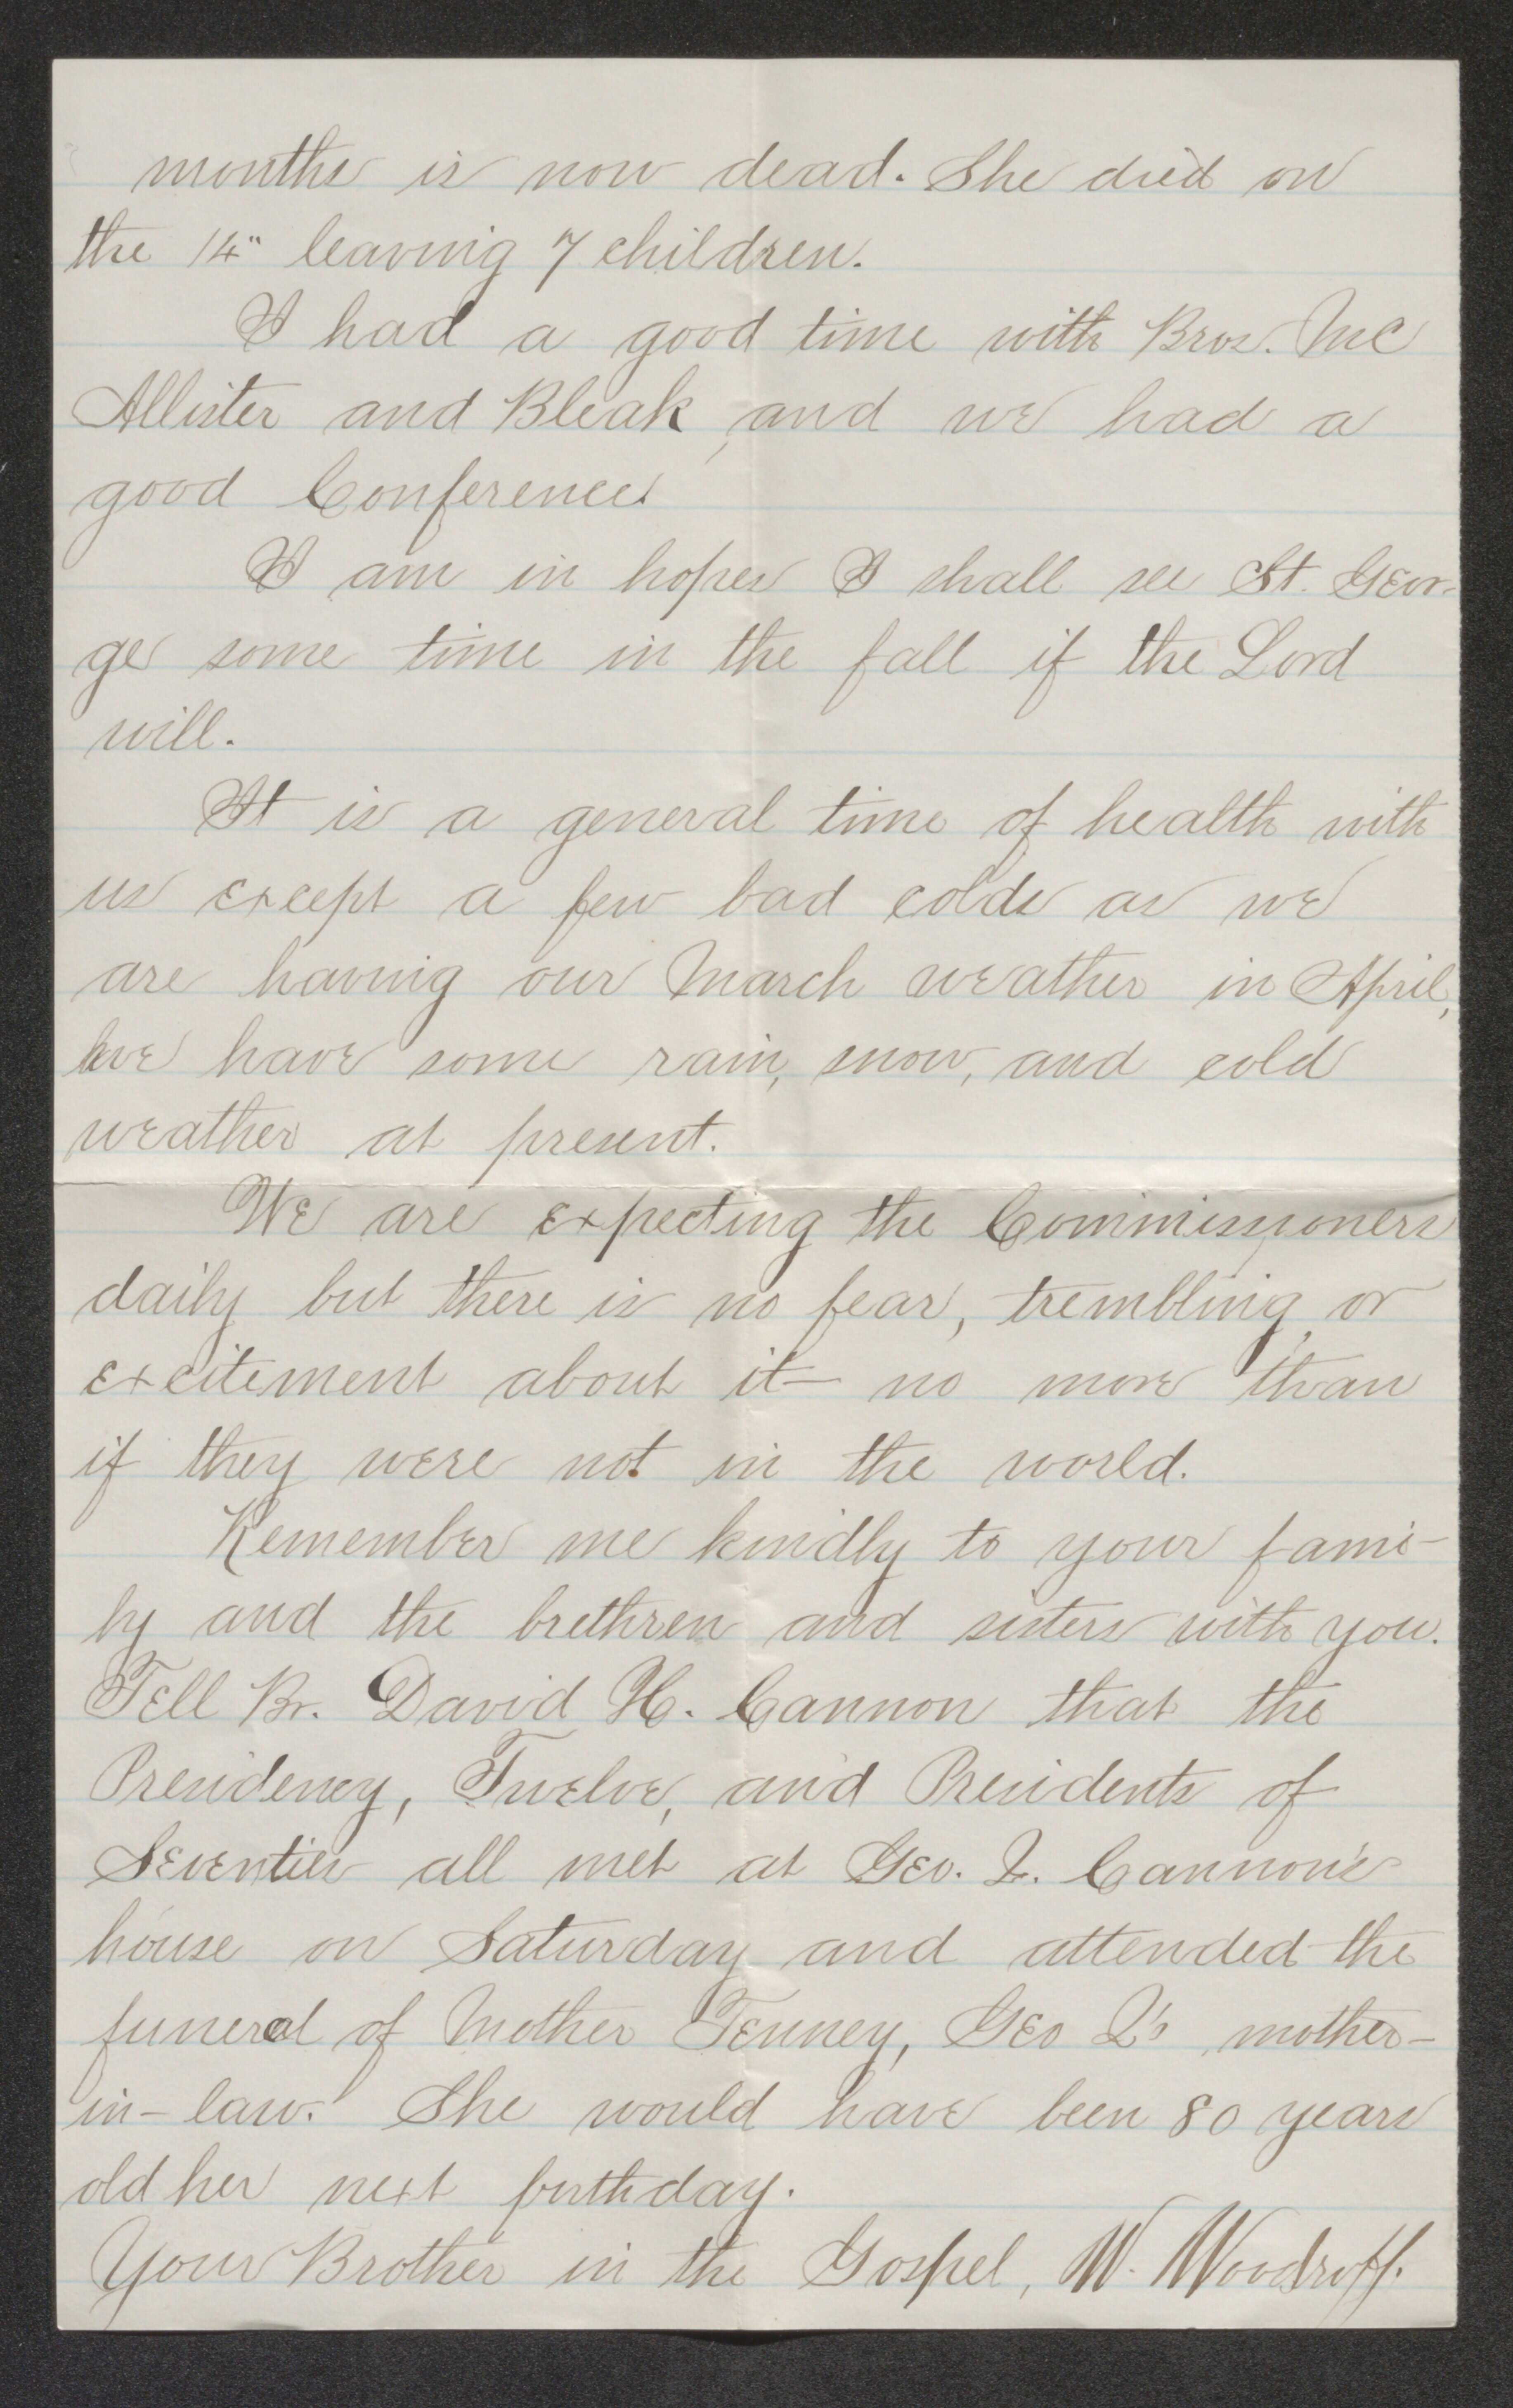 months is now dead. She died on
the 14" leaving 7 children.
I had a good time with Bros. Mc
Allister and Bleak, and we had a
good Conference.
I am in hopes I shall see St. Geor-
ge some time in the fall if the Lord
will.
It is a general time of health with
us except a few bad colds as we
are having our March weather in April,
we have some rain, snow, and cold
weather at present.
We are expecting the Commissioners
daily but there is no fear, trembling, or
excitement about it— no more than
if they were not in the world.
Remember me kindly to your fami-
ly and the brethren and sisters with you.
Tell Br. David H. Cannon that the
Presidency, Twelve, and Presidents of
Seventies all met at Geo. Q. Cannon's
house on Saturday and attended the
funeral of Mother Tenney, Geo Q's mother-
in-law. She would have been 80 years
old her next birthday.
Your Brother in the Gospel, W. Woodruff.